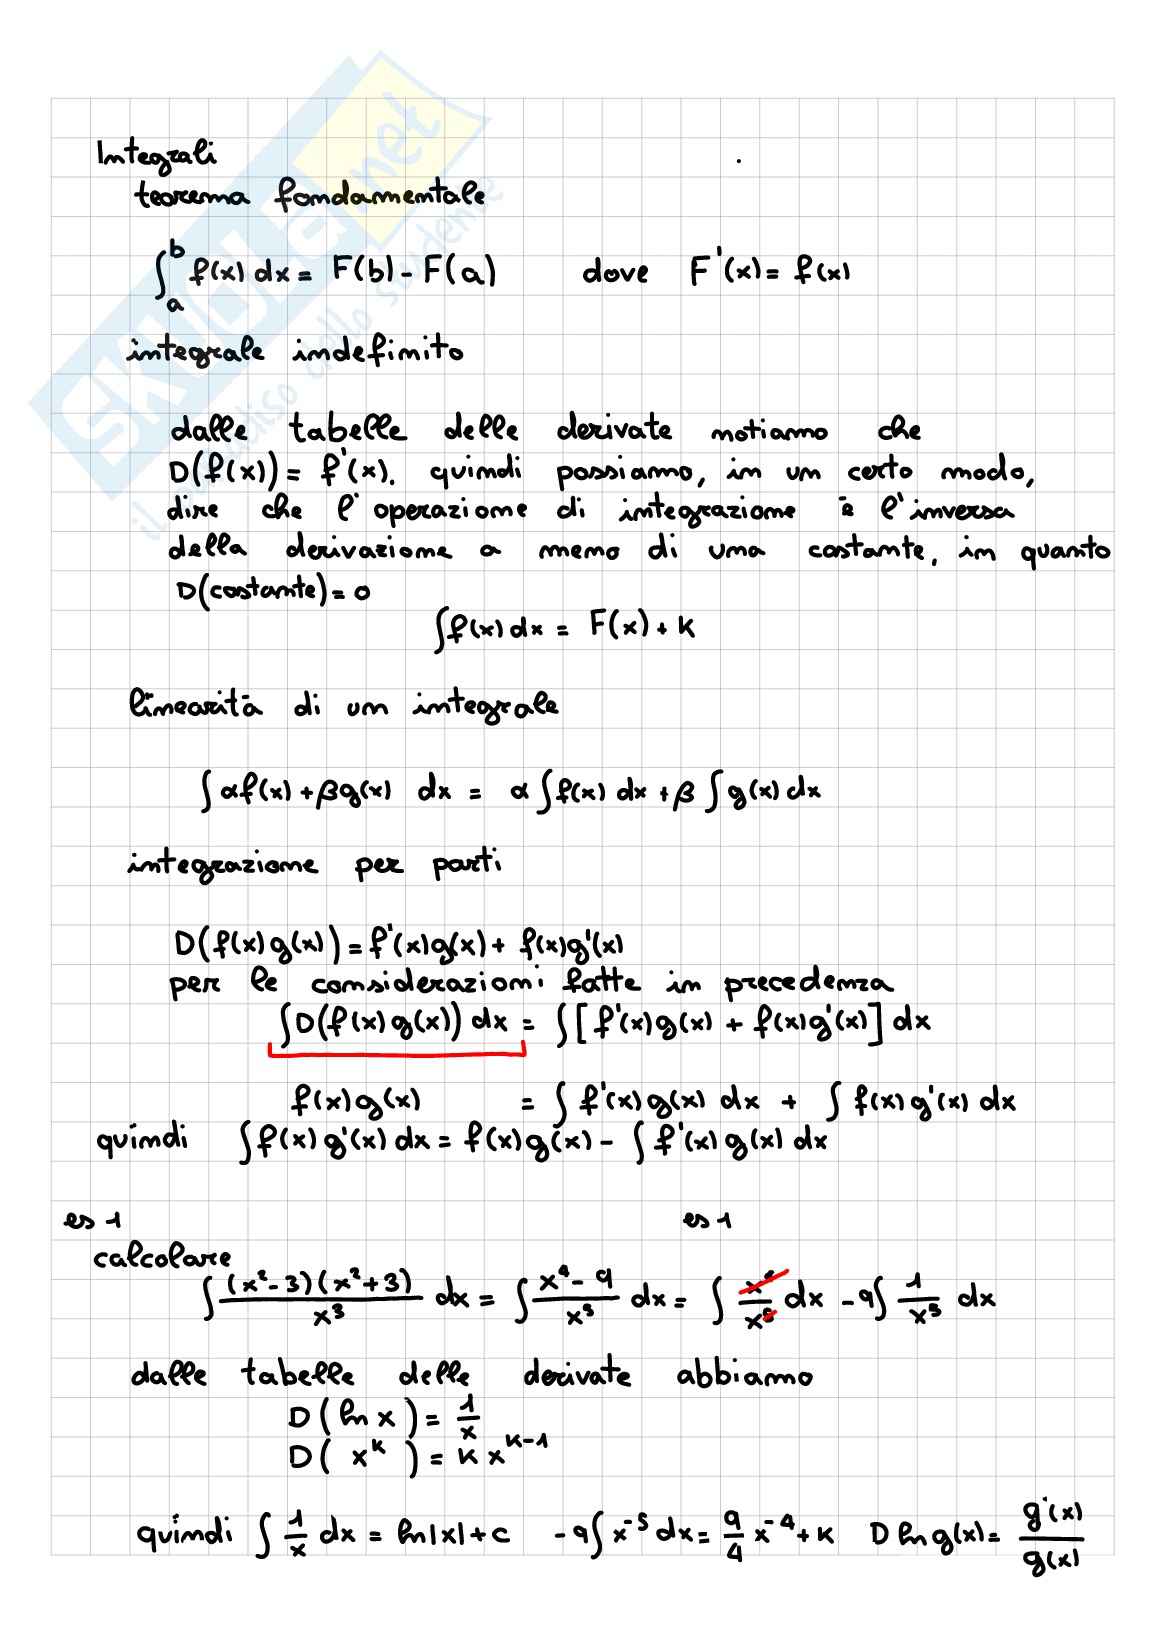 Integrali
teorema fondamentale
∫_a^b f(x) dx = F(b) - F(a) dove F'(x) = f(x)
integrale indefinito
dalle tabelle delle derivate notiamo che
D(f(x)) = f'(x). quindi possiamo, in un certo modo,
dire che l'operazione di integrazione è l'inversa
della derivazione a meno di una costante, in quanto
D(costante) = 0
∫f(x) dx = F(x) + k
linearità di un integrale
∫αf(x) + βg(x) dx = α∫f(x) dx + β∫g(x) dx
integrazione per parti
D(f(x)g(x)) = f'(x)g(x) + f(x)g'(x)
per le considerazioni fatte in precedenza
∫D(f(x)g(x)) dx = ∫[f'(x)g(x) + f(x)g'(x)] dx
f(x)g(x) = ∫f'(x)g(x) dx + ∫f(x)g'(x) dx
quindi ∫f(x)g'(x) dx = f(x)g(x) - ∫f'(x)g(x) dx
es 1 es 1
calcolare
∫(x²-3)(x²+3)/x³ dx = ∫(x⁴-9)/x⁵ dx = ∫x⁴/x⁵ dx - 9∫1/x⁵ dx
dalle tabelle delle derivate abbiamo
D(ln x) = 1/x
D(x^k) = k x^(k-1)
quindi ∫1/x dx = ln|x| + c -9∫x⁻⁵ dx = 9/4 x⁻⁴ + k D ln g(x) = g'(x)/g(x)
SKUOLA.net
il paradiso dello studente